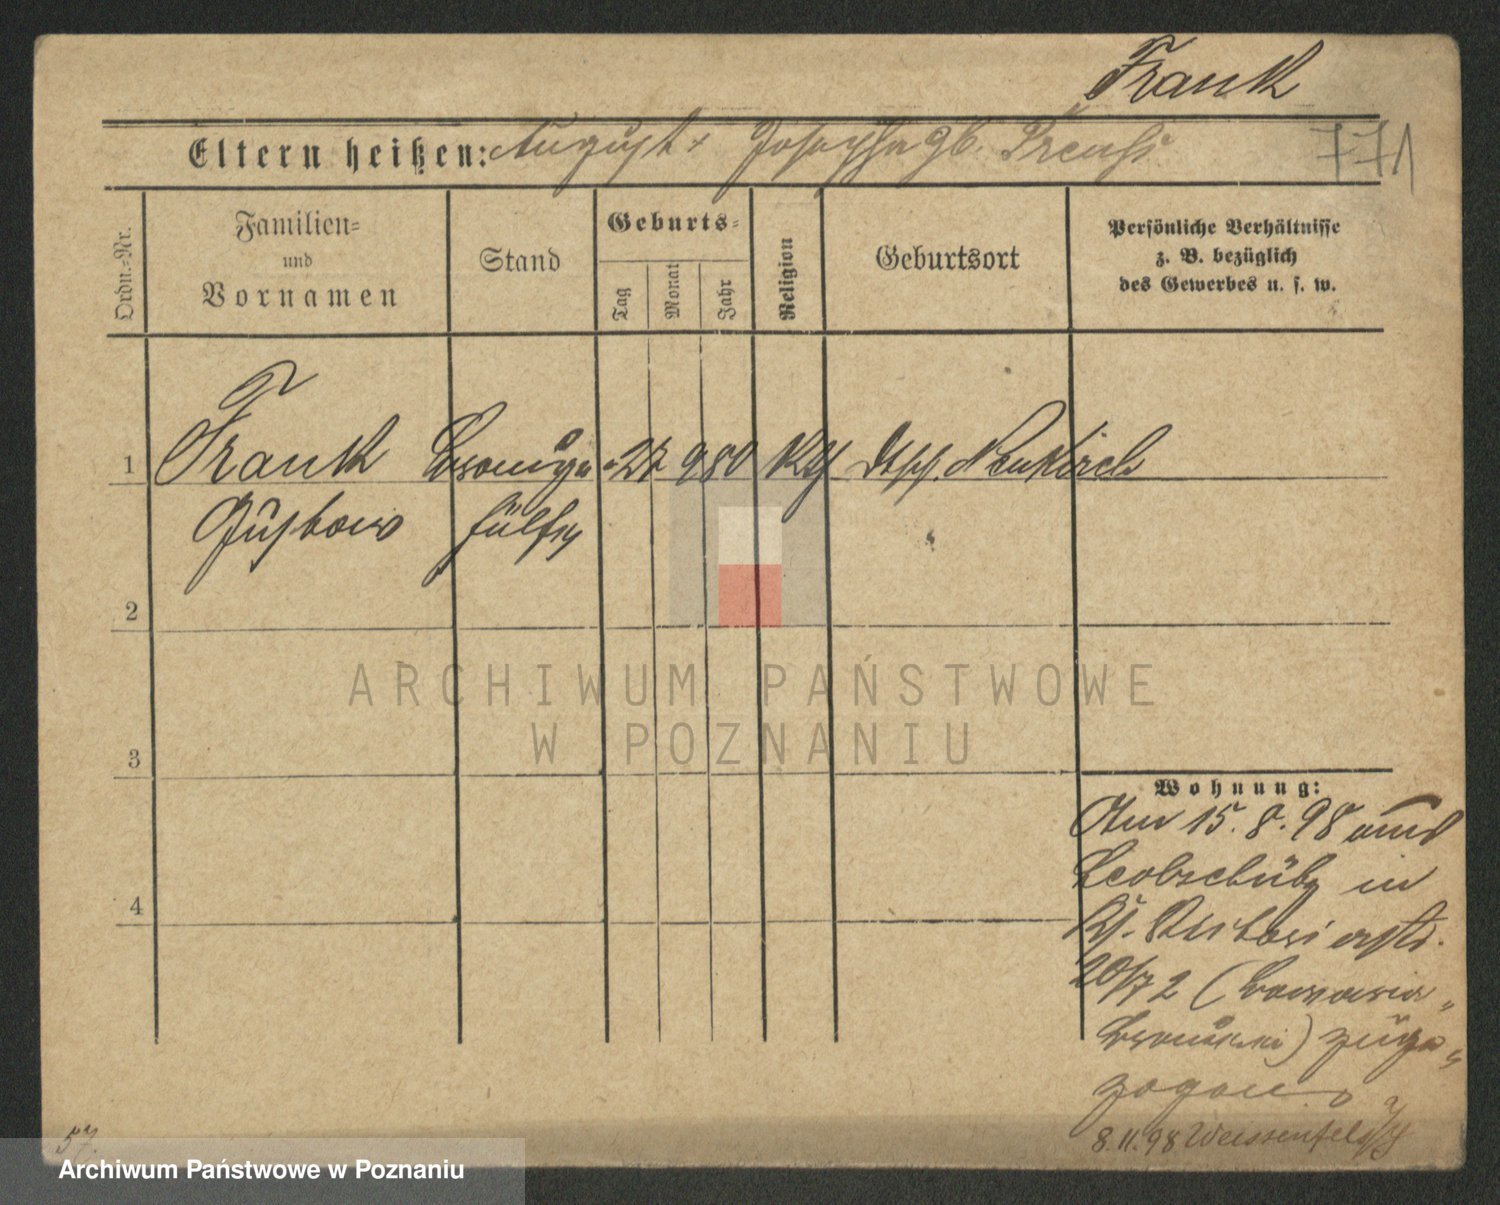 Frank
Eltern heißen: August + Josepha gb. Preuß
771
Ordn.-Nr.
Familien-
und
Vornamen
Stand
Geburts-
Tag
Monat
Jahr
Religion
Geburtsort
Persönliche Verhältnisse
z. B. bezüglich
des Gewerbes u. s. w.
1 Frank 9 80 Dtsch. Neukirch
Gustav
2
ARCHIWUM PAŃSTWOWE
W POZNANIU
3
Wohnung:
Am 15.8.98 aus
Leobschütz in
4
20/72 (
) zuge-
zogen
8.11.98 Weissenfels
57.
Archiwum Państwowe w Poznaniu